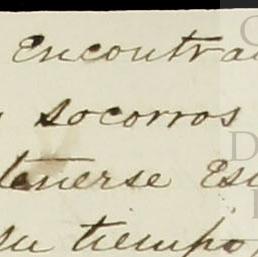 encontra
socorros
tenerse Es
su tiempo,